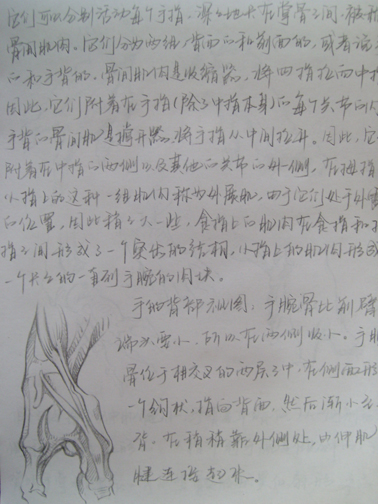 它们可以分别活动每个手指，深深地长在掌骨之间，被称
骨间肌肉。它们分为两组，背面的和前面的，或者说
的和手背的，骨间肌肉是收缩器，将四指拉向中指
因此，它们附着在手指（除了中指本身）的每个关节的内
手背的骨间肌是撑开器，将手指从中间拉开。因此，它
附着在中指的两侧以及其他的关节的外侧，在拇指
小指上的这种一组肌肉称为外展肌，由于它们处于外
的位置，因此稍大一些，食指上的肌肉在食指和
指之间形成了一个突出的结构，小指上的肌肉形成
一个长长的一直到手腕的肉块。
手的背部示意图，手腕骨比前臂
端头要小，所以在两侧收小。手腕
骨位于相交叉的两层之中，在侧面形
一个钩状，指向背面，然后渐小
背，在稍稍靠外侧处，由伸肌
腱连接起来。